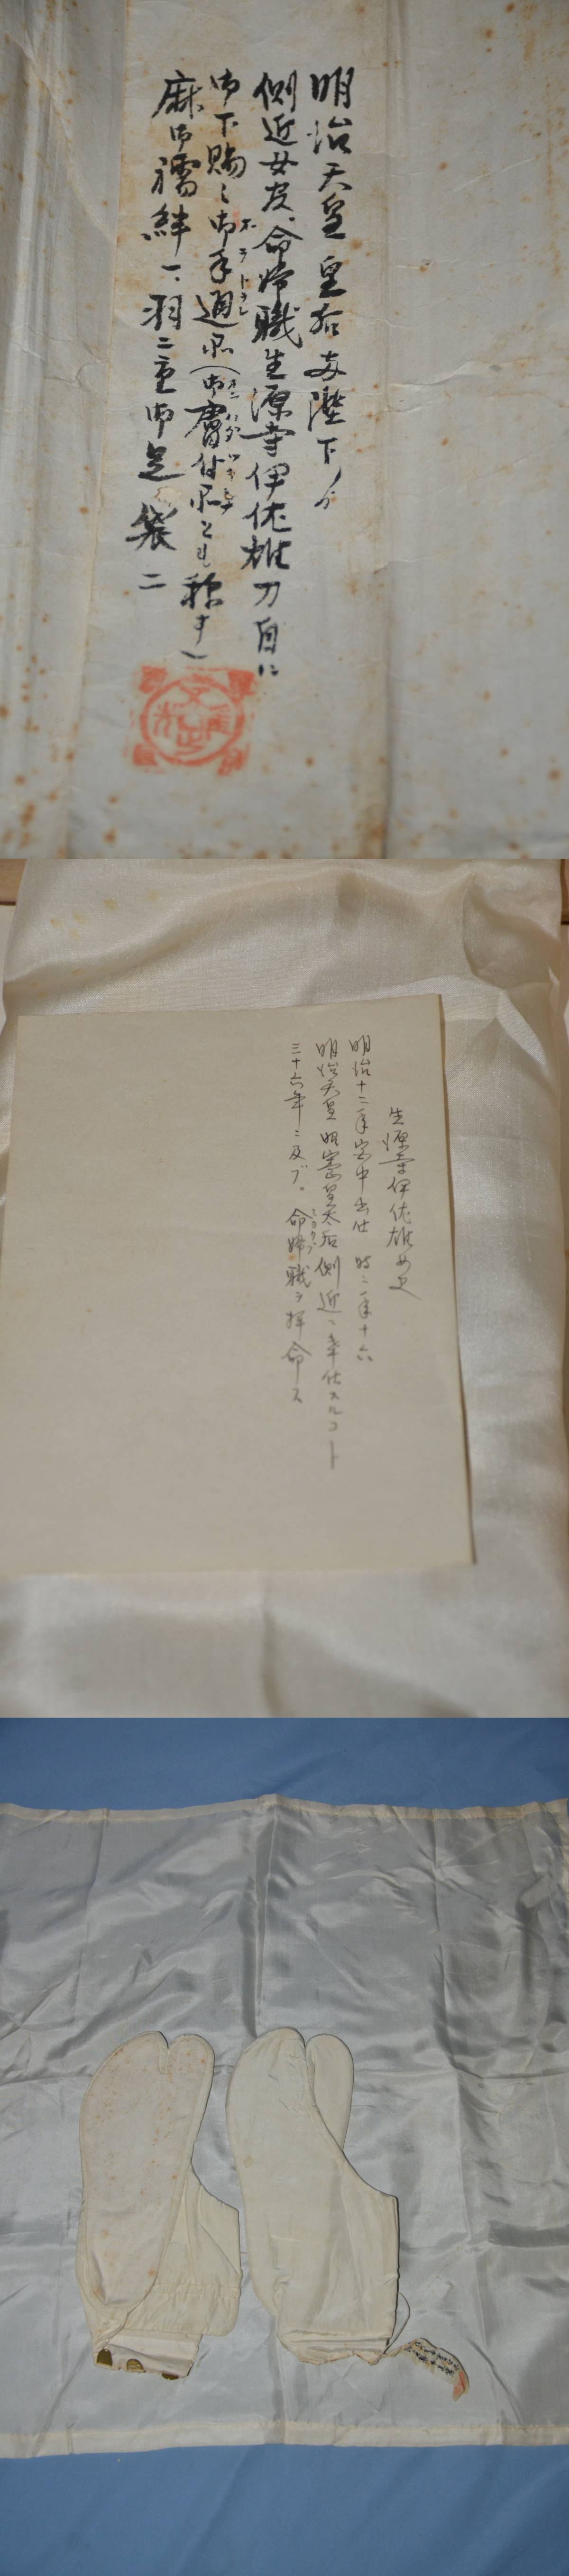 明治天皇 皇后両陛下より
側近女官、命婦職生源寺伊佐雄刀自に
御下賜之御手通品(御膚付品とも称す)
麻御襦絆一、羽二重御足袋二
生源寺伊佐雄女史
明治十二年宮中出仕 時ニ年十六
明治天皇 昭憲皇太后側近ニ奉仕スルコト
三十六年ニ及ブ。命婦職ヲ拝命ス